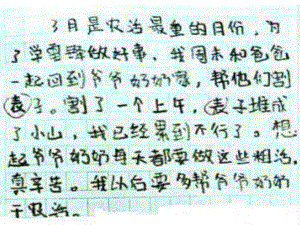 3月是农活最重的月份，为
了学雷锋做好事，我周末和爸爸
一起回到爷爷奶奶家，帮他们割
麦子。割了一个上午，麦子堆成
了小山，我已经累到不行了。想
起爷爷奶奶每天都要做这些粗活，
真辛苦。我以后要多帮爷爷奶奶
干农活。